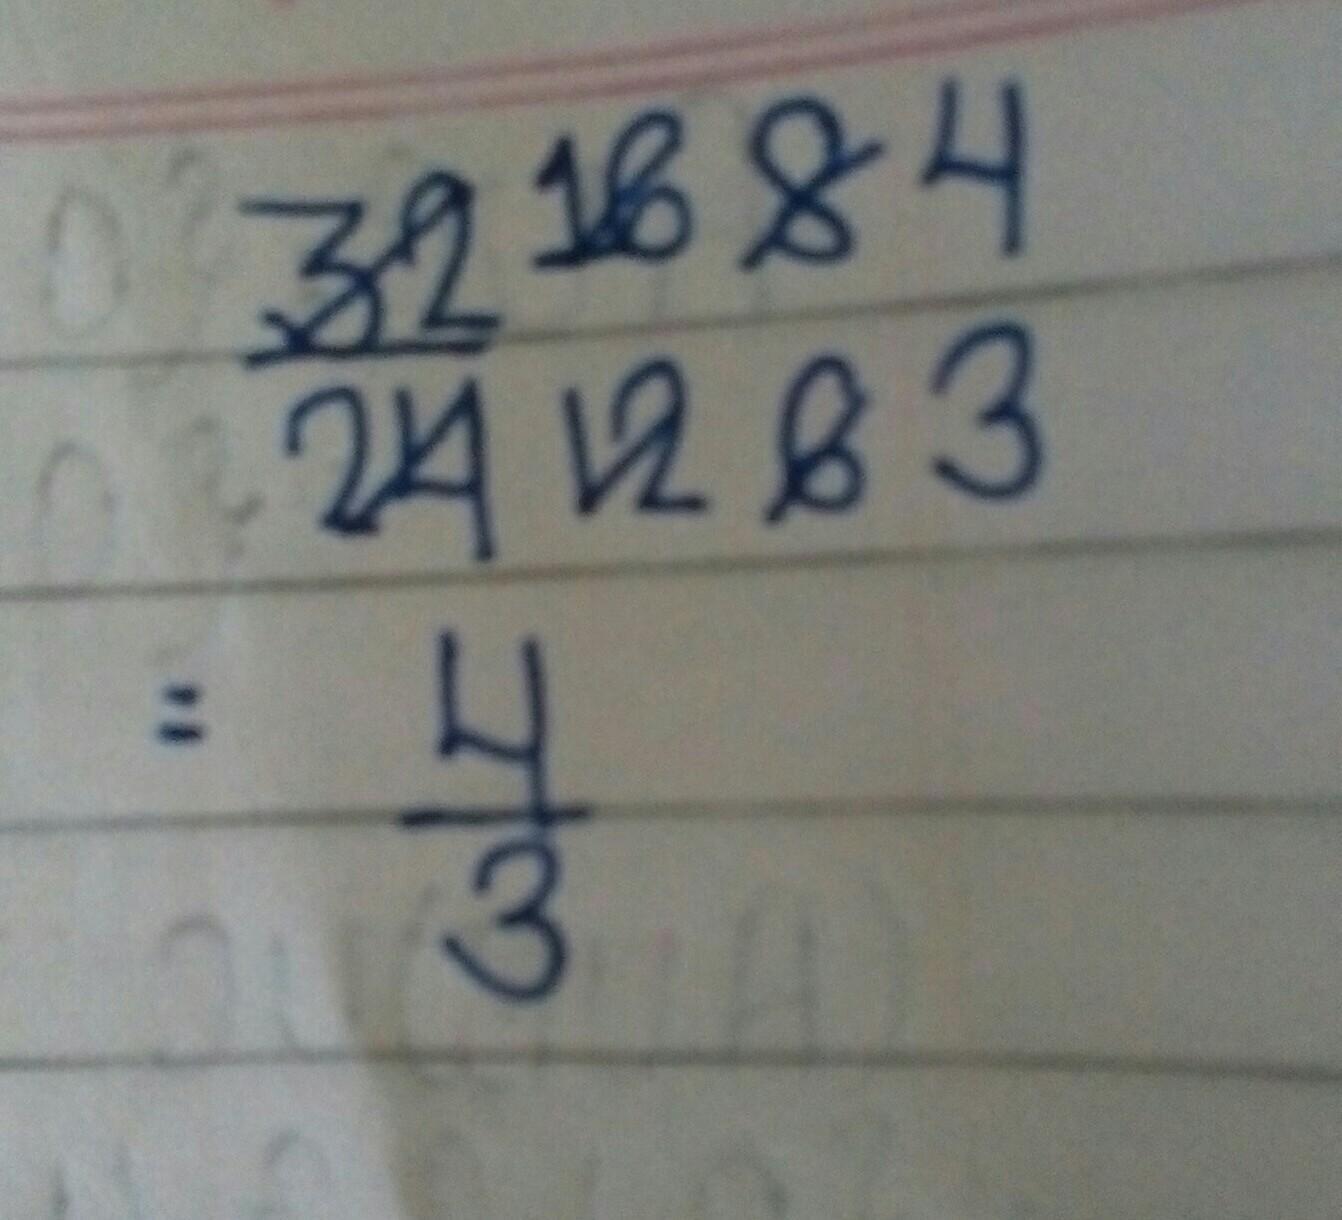 32 16 8 4
24 12 6 3
= 4
3